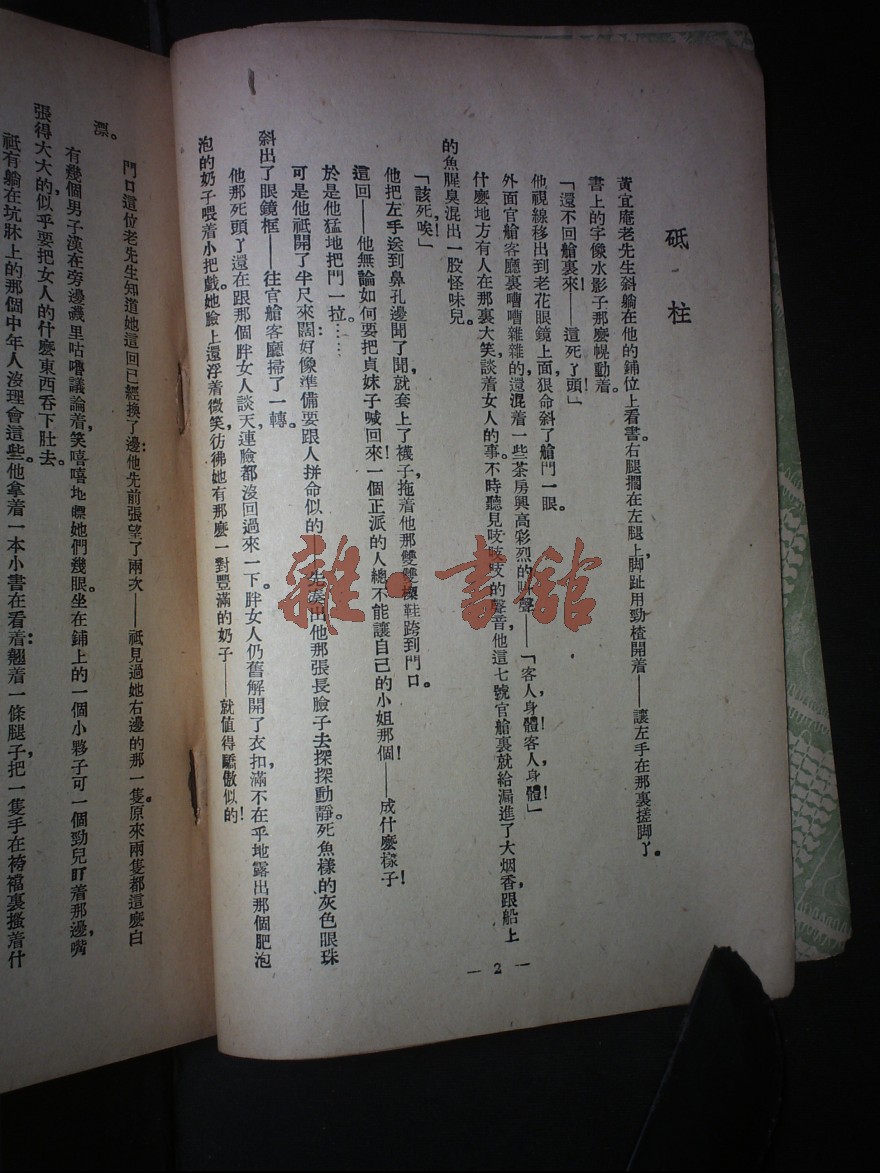 砥柱
黃宜庵老先生斜躺在他的鋪位上看書。右腿擱在左腿上，脚趾用勁楂開着——讓左手在那裏搓脚丫。
書上的字像水影子那麽幌動着。
「還不回艙裏來——這死丫頭！」
他視線移出到老花眼鏡上面，狠命斜了艙門一眼。
外面官艙客廳裏嘈嘈雜雜的，還混着一些茶房興高彩烈的叫聲——「客人，身體！客人，身體！」
什麽地方有人在那裏大笑，談着女人的事，不時聽見吱吱吱的聲音。他這七號官艙裏就給漏進了大烟香，跟船上
的魚腥臭混出一股怪味兒。
「該死，唉！」
他把左手送到鼻孔邊聞了聞，就套上了襪子，拖着他那雙雙樑鞋跨到門口。
這回——他無論如何要把貞妹子喊回來！一個正派的人總不能讓自己的小姐那個——成什麽樣子！
於是他猛地把門一拉。……
可是他祇開了半尺來闊：好像準備要跟人拼命似的——先湊出他那張長臉子去探探動靜。死魚樣的灰色眼珠
斜出了眼鏡框——往官艙客廳掃了一轉。
他那死頭丫還在跟那個胖女人談天，連臉都沒回過來一下。胖女人仍舊解開了衣扣，滿不在乎地露出那個肥泡
泡的奶子喂着小把戲。她臉上還浮着微笑，彷彿她有那麽一對豐滿的奶子——就值得驕傲似的！
— 2 —
門口這位老先生知道她這回已經換了邊：他先前張望了兩次——祇見過她右邊的那一隻。原來兩隻都這麽白
漂。
有幾個男子漢在旁邊磯里咕嚕議論着，笑嘻嘻地瞟她們幾眼。坐在鋪上的一個小夥子可一個勁兒盯着那邊，嘴
張得大大的，似乎要把女人的什麽東西吞下肚去。
祇有躺在炕牀上的那個中年人沒理會這些。他拿着一本小書在看着：翹着一條腿子，把一隻手在袴襠裏搔着什
雜·書館